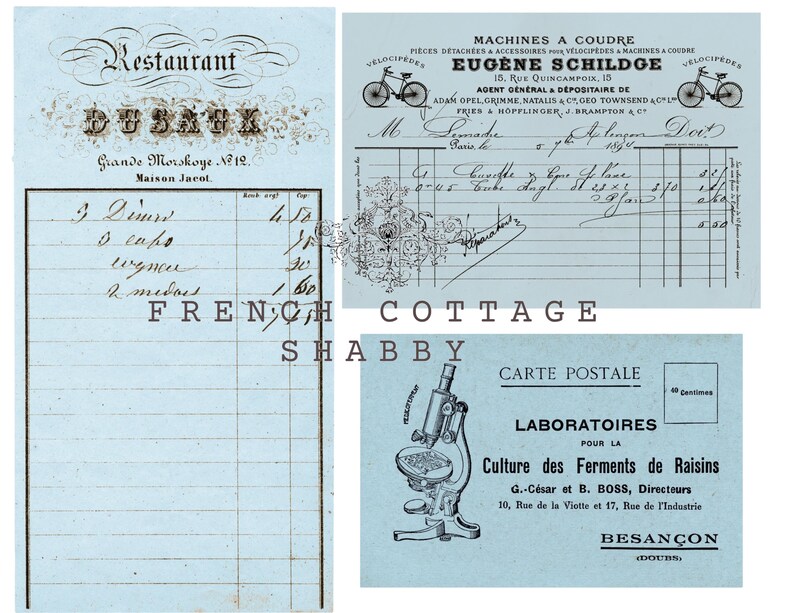 Restaurant
DUSAUX
Grande Morskoye № 12.
Maison Jacot.
Roub. argt Cop:
3 Diners 4 50
3 cafés 75
cognac 30
FRENCH COTTAGE
SHABBY
MACHINES A COUDRE
PIÈCES DÉTACHÉES & ACCESSOIRES POUR VÉLOCIPÈDES & MACHINES A COUDRE
VÉLOCIPÈDES EUGÈNE SCHILDGE VÉLOCIPÈDES
15, RUE QUINCAMPOIX, 15
AGENT GÉNÉRAL & DÉPOSITAIRE DE
ADAM OPEL, GRIMME, NATALIS & Cie, GEO TOWNSEND & Cie LTD
FRIES & HÖPFLINGER, J. BRAMPTON & Co
M Alençon Doit
Paris, le 5 7bre 1894
Cuvette &
0m45 Tube Angl de 22 x 2 3 70
Réparations
CARTE POSTALE
40 Centimes
LABORATOIRES
POUR LA
Culture des Ferments de Raisins
G.-César et B. BOSS, Directeurs
10, Rue de la Viotte et 17, Rue de l'Industrie
BESANÇON
(DOUBS)